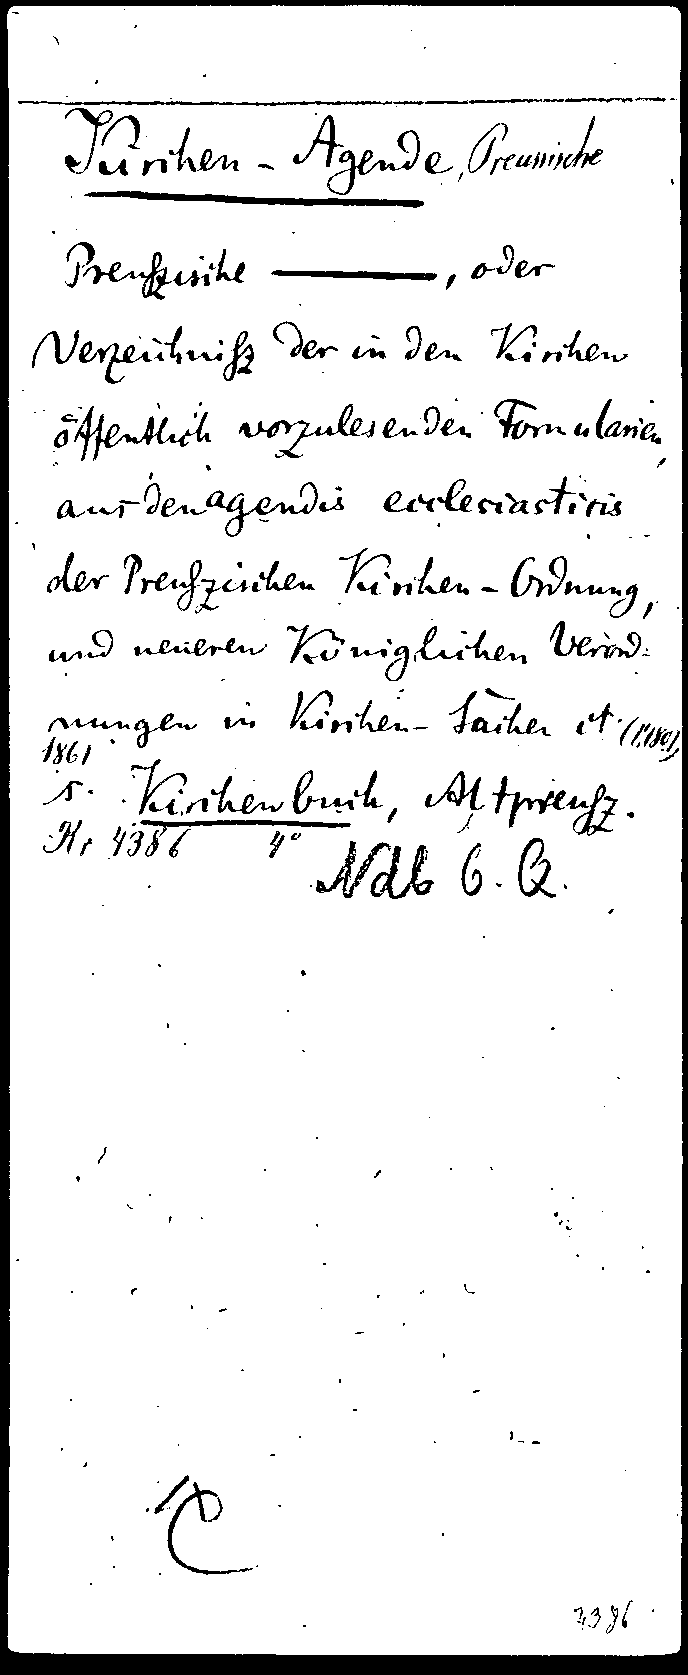 Kirchen-Agende, Preussische
Preuszische ———, oder
Verzeichnisz der in den Kirchen
öffentlich vorzulesenden Formularien,
aus den agendis ecclesiasticis
der Preuszischen Kirchen-Ordnung,
und neueren Königlichen Verord-
nungen in Kirchen-Sachen et
1861
s. Kirchenbuch, Altpreusz.
Kr 4386 4°
Ndb
4386